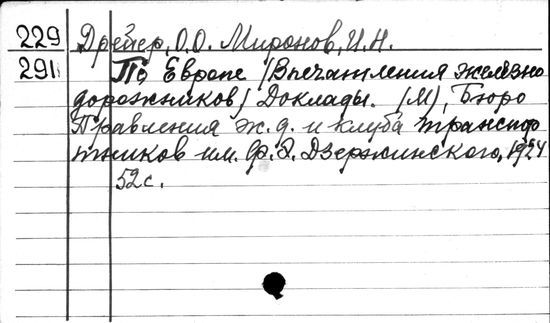 229 Дрейер, О.О. Миронов, И.Н.
291 По Европе (Впечатления железно
дорожников) Доклады. (М), Бюро
Правления ж.д. и клуба транспор
тников им. Ф.Э. Дзержинского, 1924
52с.